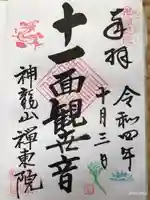 奉拝
令和四年
十月三日
十一面観世音
神龍山 禅東院